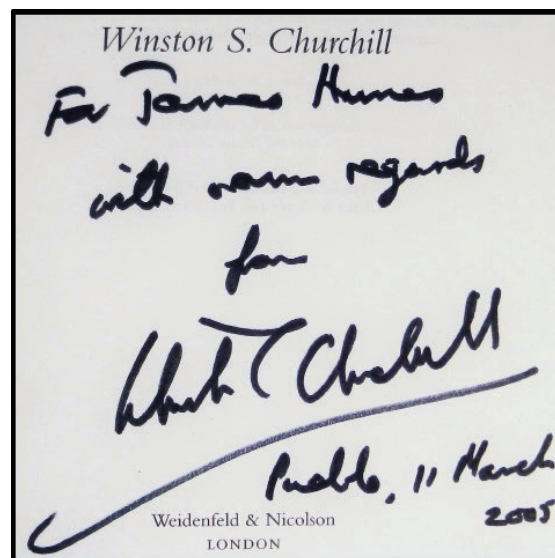 Winston S. Churchill
For James Humes
with warm regards
from
Winston S. Churchill
Pueblo, 11 March
2005
Weidenfeld & Nicolson
LONDON